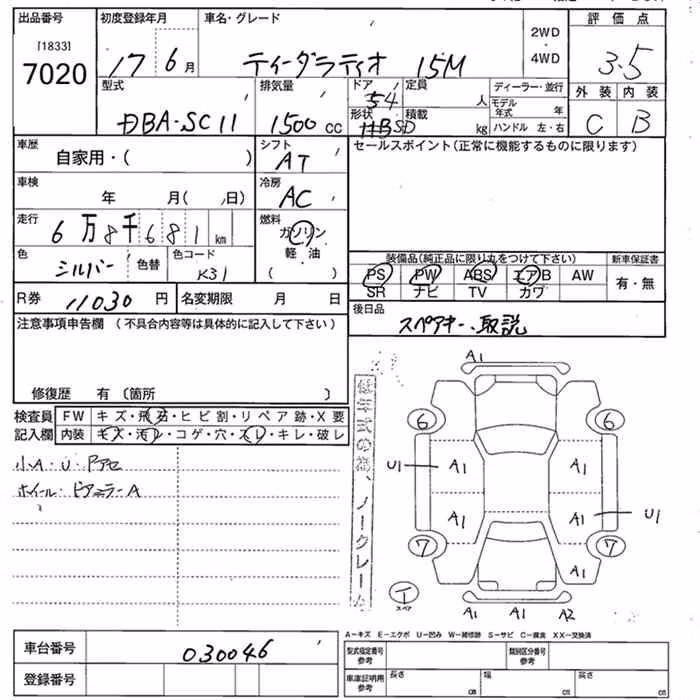 出品番号 初度登録年月 車名・グレード 2WD 評価点
[1833] 7020 17 6月 ティーダラティオ 15M 4WD 3.5
型式 排気量 ドア 定員 ディーラー・並行 外装 内装
DBA-SC11 1500cc 54 人 モデル年式 年 C B
形状 積載 kg ハンドル 左・右
HBSD
車歴 自家用・( ) シフト AT セールスポイント(正常に機能するものに限ります)
車検 年 月( 日) 冷房 AC
走行 6万8千681km 燃料 ガソリン
軽油
( )
色 シルバー 色替 色コード K31
装備品(純正品に限り丸をつけて下さい) 新車保証書
PS PW ABS エアB AW 有・無
SR ナビ TV カワ
R券 11030円 名変期限 月 日 後日品
スペアキー、取説
注意事項申告欄 (不具合内容等は具体的に記入して下さい)
修復歴 有〔箇所 〕
検査員 FW キズ・飛石・ヒビ割・リペア跡・X要
記入欄 内装 キズ・汚レ・コゲ・穴・スレ・キレ・破レ
小A・U・ドアセ
ホイール・ピアミラーA
ノークレーム
A1
6 6
U1 A1 A1
A1 A1 U1
7 7
A1
T
スペア
A1 A1 A2
A-キズ E-エクボ U-凹み W-補修跡 S-サビ C-腐食 XX-交換済
車台番号 030046 型式指定番号 参考 類別区分番号 参考
登録番号 車庫証明用 参考 長さ cm 幅 cm 高さ cm